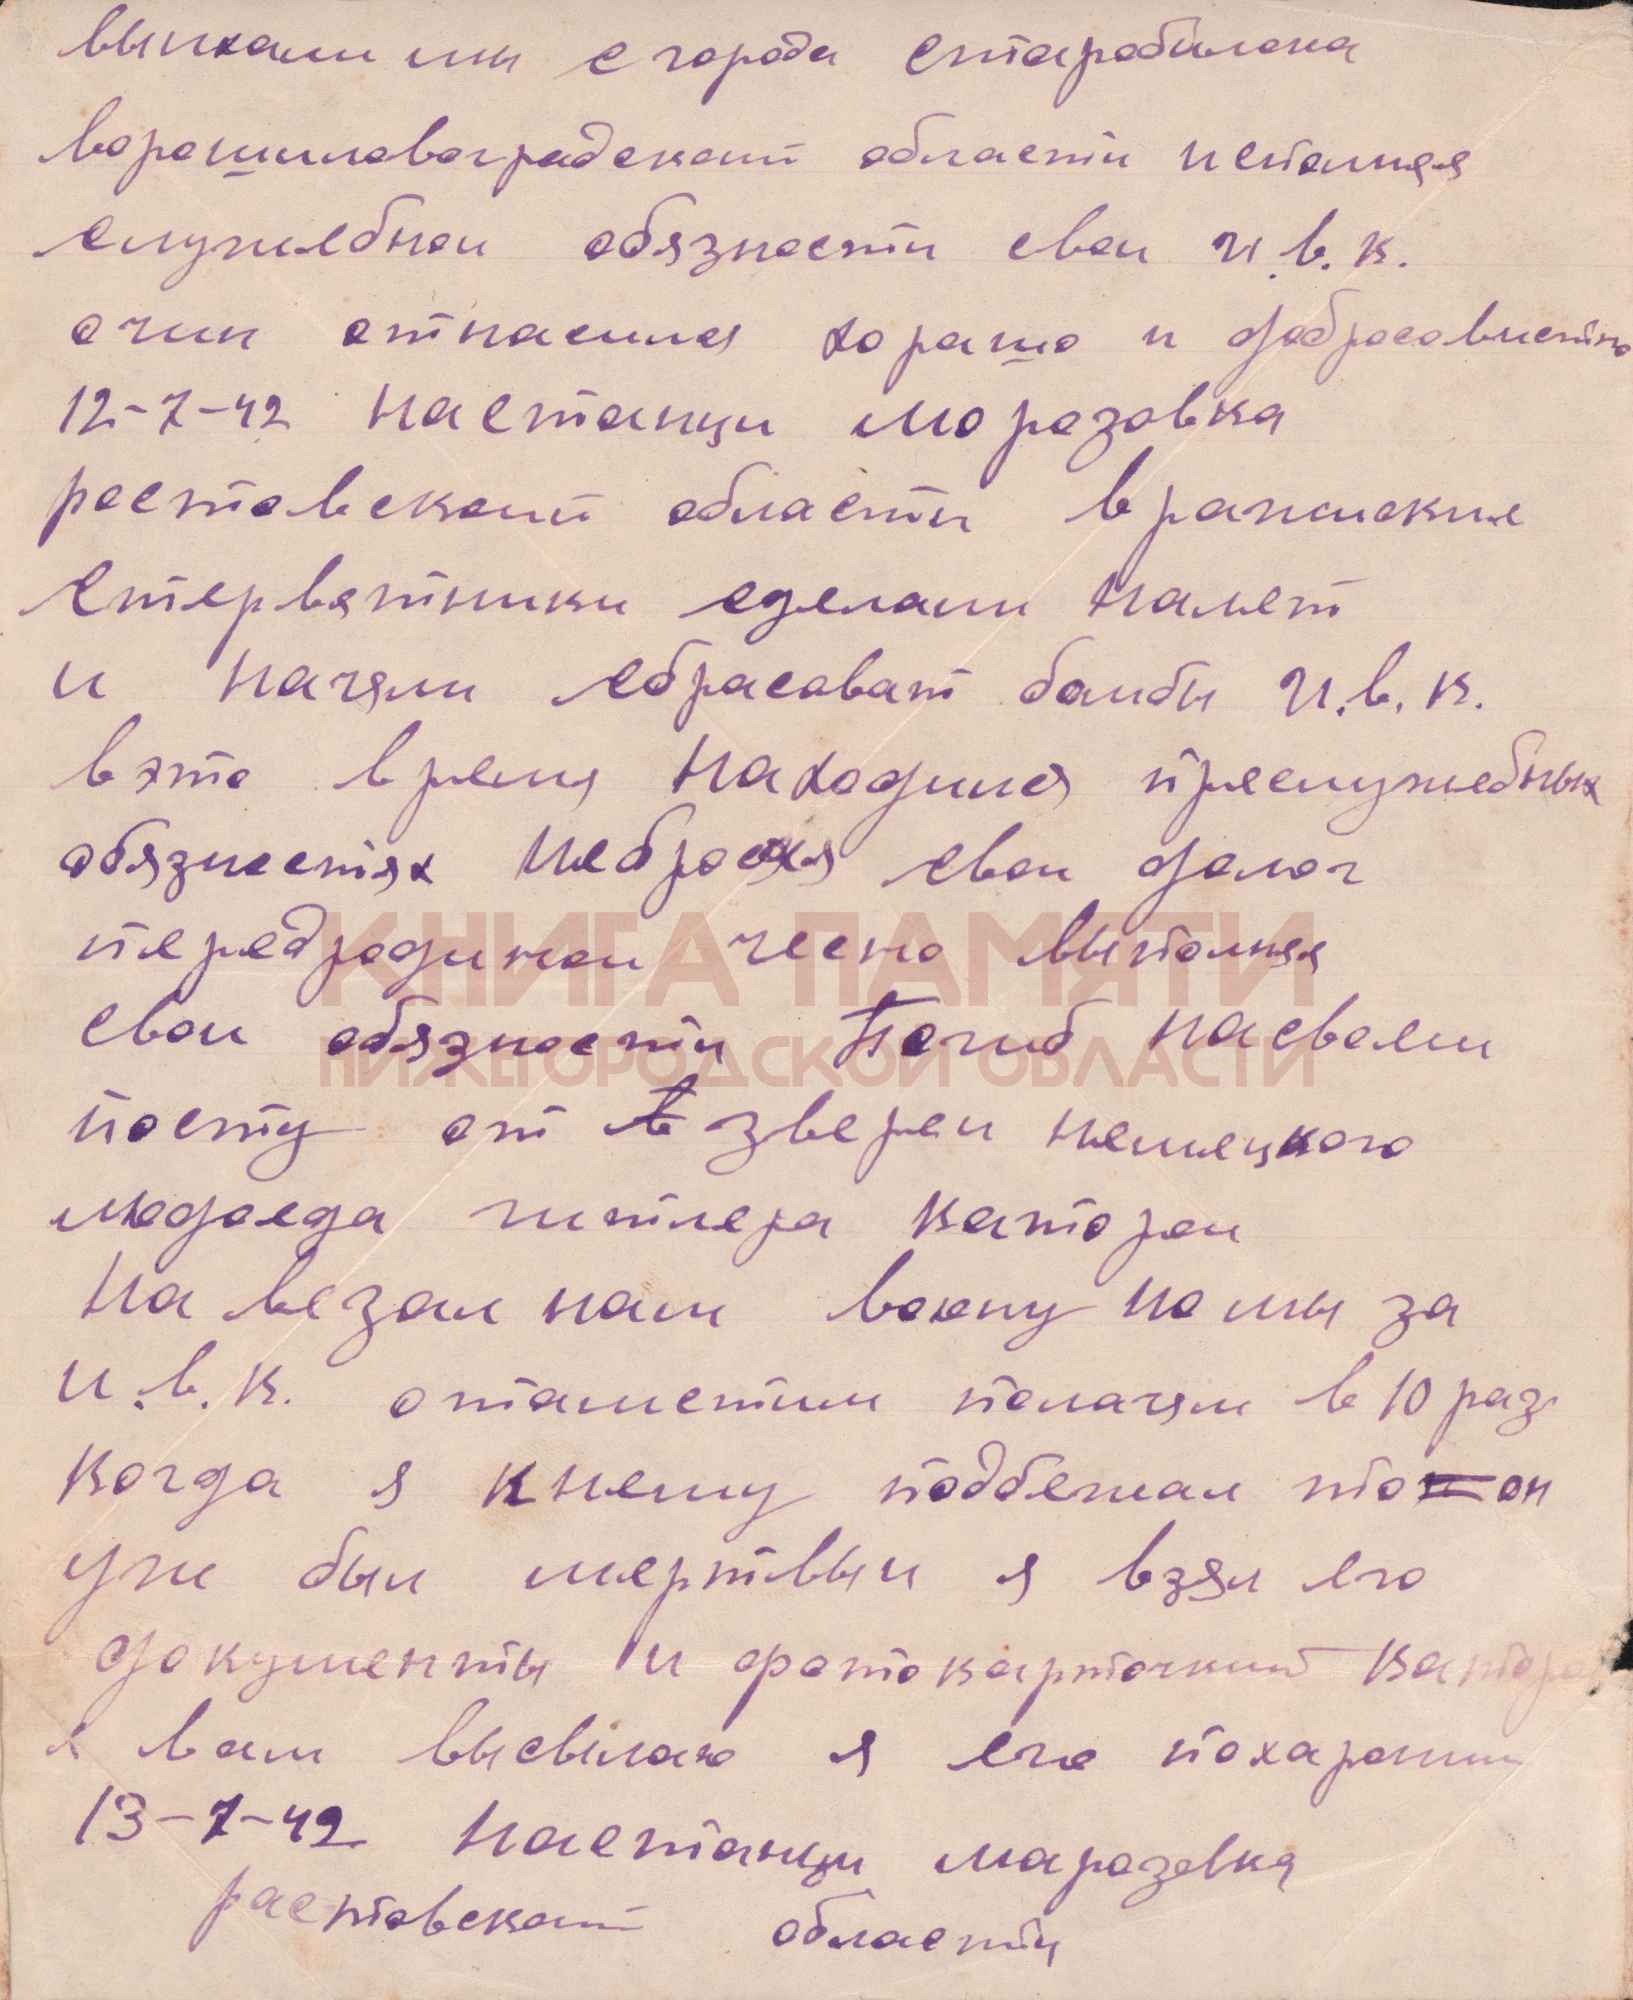 выихали мы с города старобилска
ворошиловоградскои области исполняя
служебнои обязности свои И.В.К.
очин отнасился хорашо и добрасависто
12-7-42 настанци морозовка
ростовскои области вражиские
стервятники сделали налет
и начяли сбрасоват бомбы И.В.К.
вэто время находился преслужебных
обязностях неброся свои долог
передродинои чесно выполняя
свои обязности Погиб насвоем
посту от звереи немецкого
людоеда гитлера каторои
навезал нам воину но мы за
И.В.К. отамстим полачям в 10 раз
когда я кнему подбежал то он
уже был мертвыи я взял его
документы и фотокарточкии каторы
я вам высылаю я его похаронил
13-7-42 настанци марозовка
растовскои области
КНИГА ПАМЯТИ
НИЖЕГОРОДСКОЙ ОБЛАСТИ